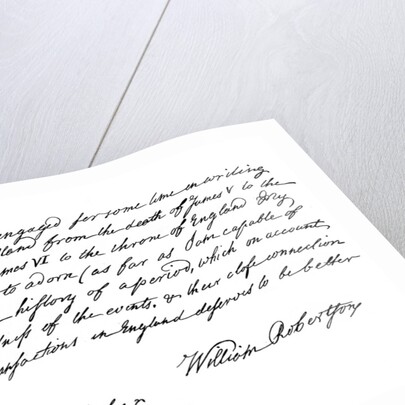 engaged for some time in writing
land from the death of James V to the
mes VI to the throne of England
to adorn (as far as I am capable of
history of a period, which on account
ness of the events, & their close connection
ansactions in England deserves to be better
William Robertson